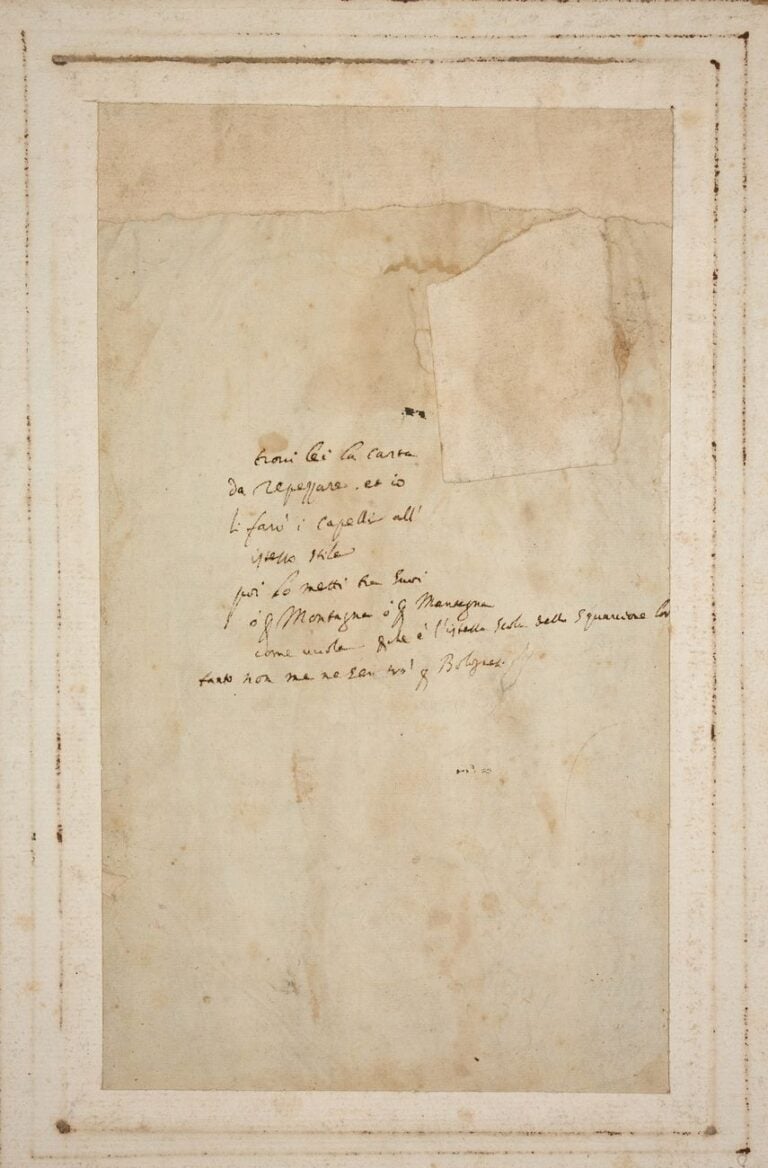 troui lei la carta
da repezzare . et io
li farò i capelli all'
istesso stile
poi lo metti tra suoi
ò p Montagna ò p Mantegna
come uuole perche è l'istessa scola dello Squarcione
tanto non me ne p Bologna